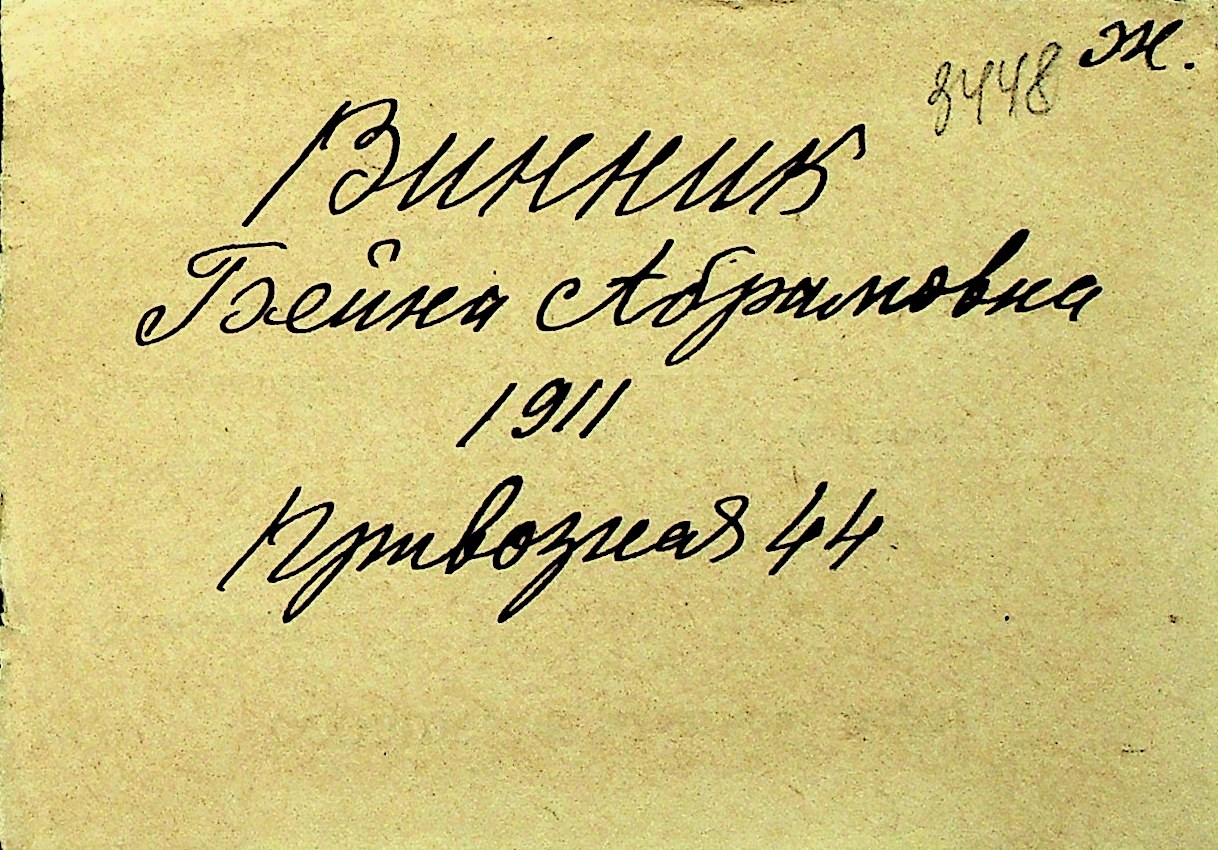 3448 ж.
Винник
Бейна Абрамовна
1911
Привозная 44